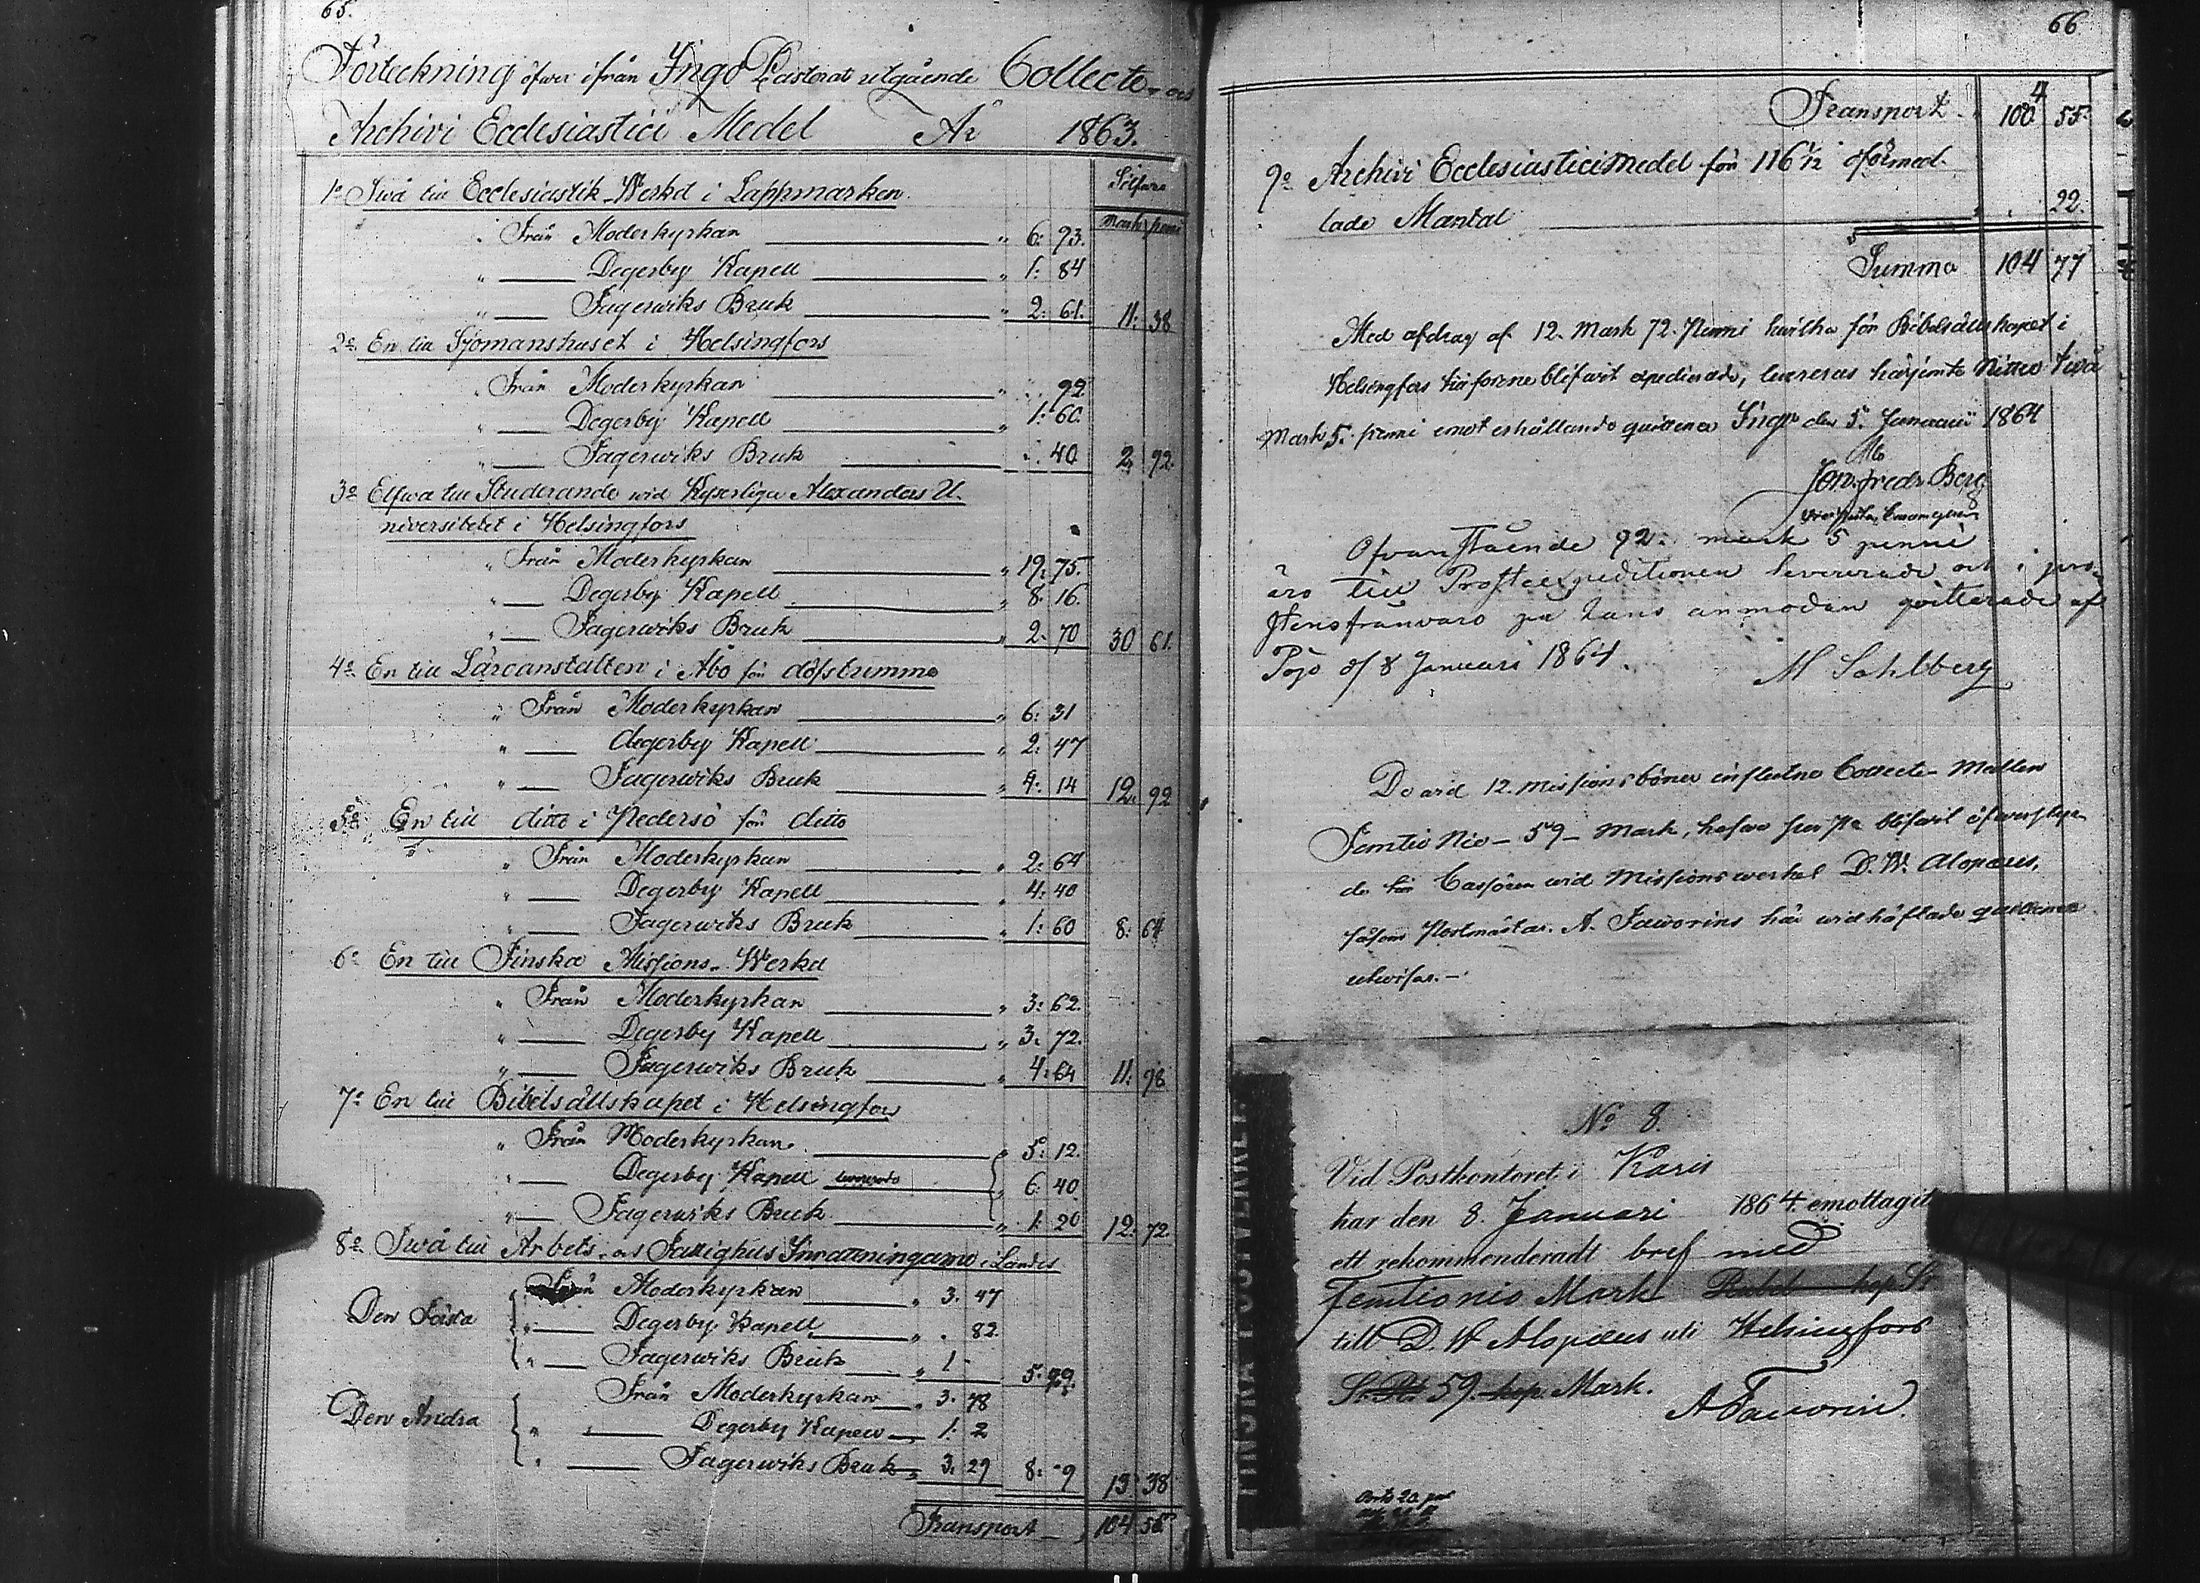 65.
Förteckning öfwer ifrån Ingo Pastorat utgående Collecter och
Archivi Ecclesiastici Medel År 1863.
Silfwer
Mark penni
1o Twå till Ecclesiastik-Werket i Lappmarken
" Från Moderkyrkan " 6: 93.
" Degerby Kapell " 1: 84
" Fagerwiks Bruk " 2: 61. 11: 38
2o En till Sjömanshuset i Helsingfors
" Från Moderkyrkan " . 92
" Degerby Kapell " 1: 60.
" Fagerwiks Bruk " . 40 2: 92.
3o Elfwa till Studerande wid Kejserliga Alexanders U-
niversitetet i Helsingfors
" Från Moderkyrkan " 19: 75.
" Degerby Kapell " 8: 16.
" Fagerwiks Bruk " 2: 70 30 61.
4o En till Läroanstalten i Åbo för döfstumma
" Från Moderkyrkan " 6: 31
" Degerby Kapell " 2: 47
" Fagerwiks Bruk " 4: 14 12. 92
5o En till ditto i Pedersö för ditto
" Från Moderkyrkan " 2: 64
" Degerby Kapell " 4: 40
" Fagerwiks Bruk " 1: 60 8: 64
6o En till Finska Missions-Werket
" Från Moderkyrkan " 3: 62.
" Degerby Kapell " 3. 72.
" Fagerwiks Bruk " 4: 64 11: 98
7o En till Bibelsällskapet i Helsingfors
" Från Moderkyrkan. " 5: 12.
" Degerby Kapell " 6: 40
" Fagerwiks Bruk " 1: 20 12: 72.
8o Twå till Arbets- och Fattighus Inrättningarne i Landet
Den Första
Från Moderkyrkan " 3. 47
" Degerby Kapell " . 82.
" Fagerwiks Bruk " 1 - 5. 29.
Den Andra
Från Moderkyrkan " 3. 78
" " Degerby Kapell 1: 2
" Fagerwiks Bruk " 3. 29 8: 9 13: 38
Transport 104 55
66
Transport " 104 55.
9o Archivi Ecclesiasticimedel för 116 1/2 oförmed-
lade Mantal " . 22.
Summa 104 77
Med afdrag af 12. Mark 72. Penni hwilka för Bibelsällskapet i
Helsingfors tillförene blifwit expedierade, levereras härjemte Nittio twå
Mark 5. penni emot erhållande quittence Ingo den 5. Januarii 1864
Jon. Fredr. Berg
Ofvanstående 92. mark 5 penni
äro till Prosteexpeditionen levererade och i pro-
stens frånvaro på hans anmodan qvitterade af
Pojo d/ 8 Januari 1864. M Sahlberg
De wid 12. missionsböner influtne Collecte-Medlen
Femtio Nio - 59 - Mark, hafwa blifwit öfwersän-
de till Cassören wid Missionswerket D. W. Alopæus,
såsom Postmästar. A. Faworins här widhäftade quittence
utwisar.-
FINSKA POSTVERKET.
No 8.
Vid Postkontoret i Karis
har den 8. Januari 1864. emottagit
ett rekommenderadt bref med
Femtionio Mark Rubel kop. Sr
till D. W Alopæus uti Helsingfors
Sr. Rb. 59. kop. Mark.
A Faworin.